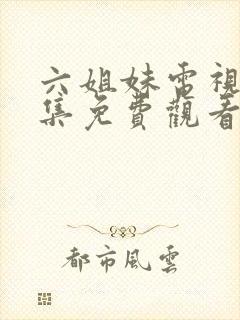 六姐妹電視
集免費觀看
都市風雲